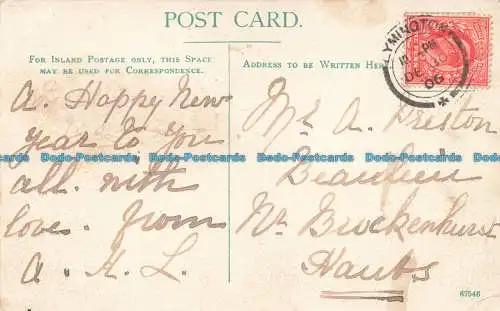 POST CARD.
FOR INLAND POSTAGE ONLY, THIS SPACE
MAY BE USED FOR CORRESPONDENCE.
ADDRESS TO BE WRITTEN HERE
LYMINGTON
PM
DE 30
06
A. Happy New
Year to You
all. with
love. from
A. H. L.
Mr A. Preston
Beaulieu
Nr Brockenhurst
Hants
67546
Dodo-Postcards Dodo-Postcards Dodo-Postcards Dodo-Postcards